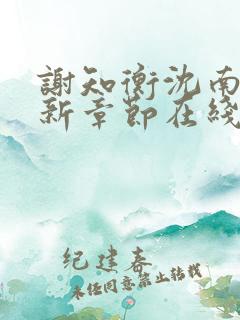 謝知衡沈南
新章節在綫
纪建春
未经同意禁止转载